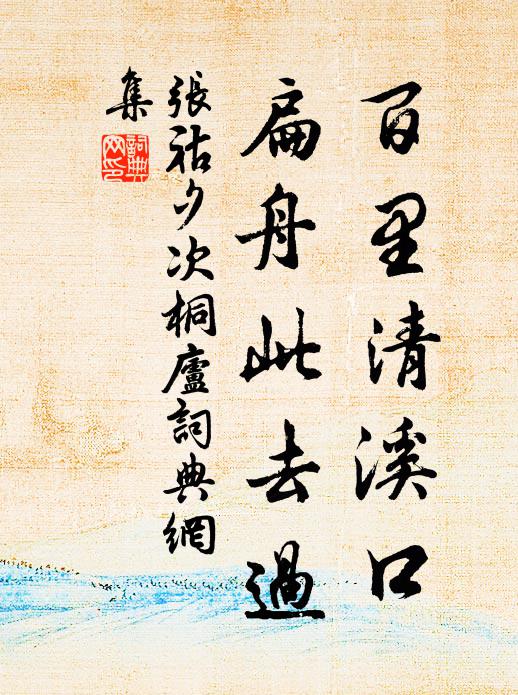 百里清溪口
扁舟此去過
張祜夕次桐廬詞典網
集
詞典
網印